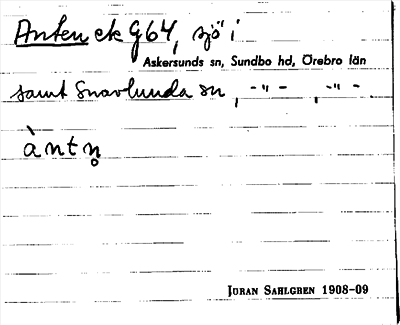 Anten ek G64, sjö i
Askersunds sn, Sundbo hd, Örebro län
samt Snavlunda sn, -"- , -"- .
àntn̥
JÖRAN SAHLGREN 1908-09